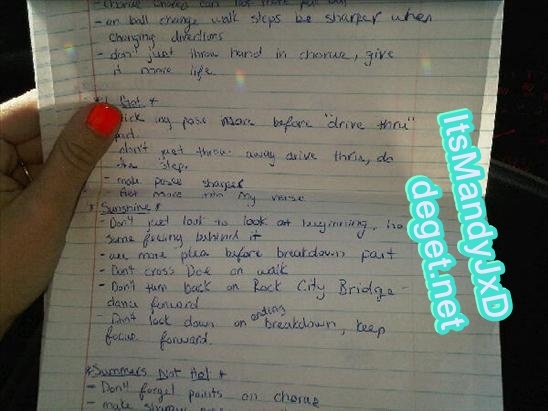 - on ball change walk steps be sharper when
changing directions
- don't just throw hand in chorus, give
it more life
Hot *
my pose more before "drive thru"
part
don't just throw away drive thru, do
the step.
- make poses sharper
more into my verse
* Sunshine *
- Don't just look to look at beginning, ha
some feeling behind it
- use more plea before breakdown part
- Don't cross Dee on walk
- Don't turn back on Rock City Bridge -
dance forward
- Don't look down on ending breakdown, keep
focus forward.
* Summers Not Hot *
- Don't forget points on chorus
- make sharper
ItsMandyJxD
deget.net